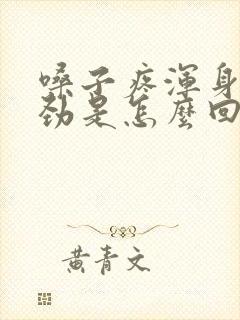 嗓子疼渾身
勁是怎麼回
黃青文